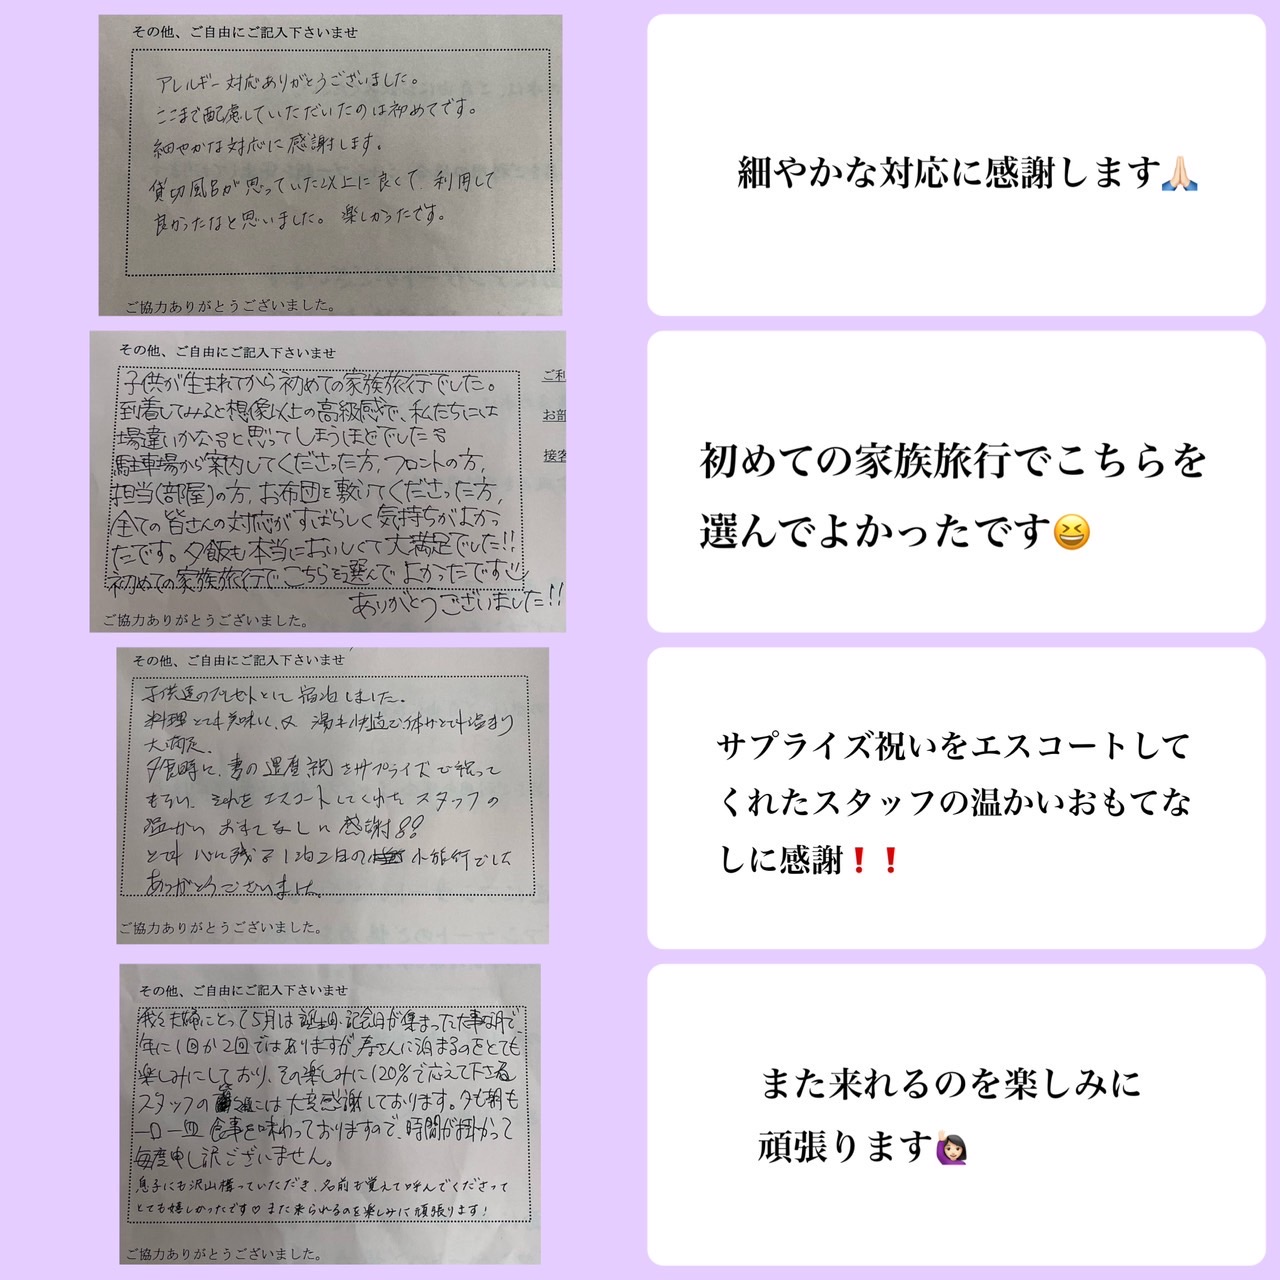 その他、ご自由にご記入下さいませ
アレルギー対応ありがとうございました。
ここまで配慮していただいたのは初めてです。
細やかな対応に感謝します。
貸切風呂が思っていた以上に良くて、利用して
良かったなと思いました。楽しかったです。
ご協力ありがとうございました。
細やかな対応に感謝します🙏🏻
その他、ご自由にご記入下さいませ
子供が生まれてから初めての家族旅行でした。
到着してみると想像以上の高級感で、私たちには
場違いかな?と思ってしまうほどでした
駐車場から案内してくださった方、フロントの方、
担当(部屋)の方、お布団を敷いてくださった方、
全ての皆さんの対応がすばらしく気持ちがよかっ
たです。夕飯も本当においしくて大満足でした!!
初めての家族旅行でこちらを選んでよかったです
ありがとうございました!!
ご協力ありがとうございました。
ご利
お部
接客
初めての家族旅行でこちらを
選んでよかったです😆
その他、ご自由にご記入下さいませ
子供達のプレゼントとして宿泊しました。
料理とても美味しく、又湯も快適で体がとても温まり
大満足。
夕食時に、妻の還暦祝をサプライズで祝って
もらい、それをエスコートしてくれたスタッフの
温かいおもてなしに感謝!!
とても心に残る1泊2日の小旅行でした
ありがとうございました。
ご協力ありがとうございました。
サプライズ祝いをエスコートして
くれたスタッフの温かいおもてな
しに感謝❗❗
その他、ご自由にご記入下さいませ
我々夫婦にとって5月は誕生日、記念日が集まった大事な月で、
年に1回か2回ではありますが、寿さんに泊まるのをとても
楽しみにしており、その楽しみに120%で応えて下さる
スタッフの には大変感謝しております。夕も朝も
一口一皿食事を味わっておりますので、時間が掛かって
毎度申し訳ございません。
息子にも沢山構っていただき、名前も覚えて呼んでくださって
とても嬉しかったです♡また来られるのを楽しみに頑張ります!
ご協力ありがとうございました。
また来れるのを楽しみに
頑張ります🙋🏻‍♀️